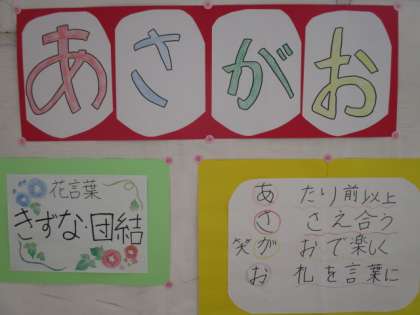 あさがお
花言葉
きずな・団結
あ たり前以上
さ さえ合う
笑が おで楽しく
お 礼を言葉に